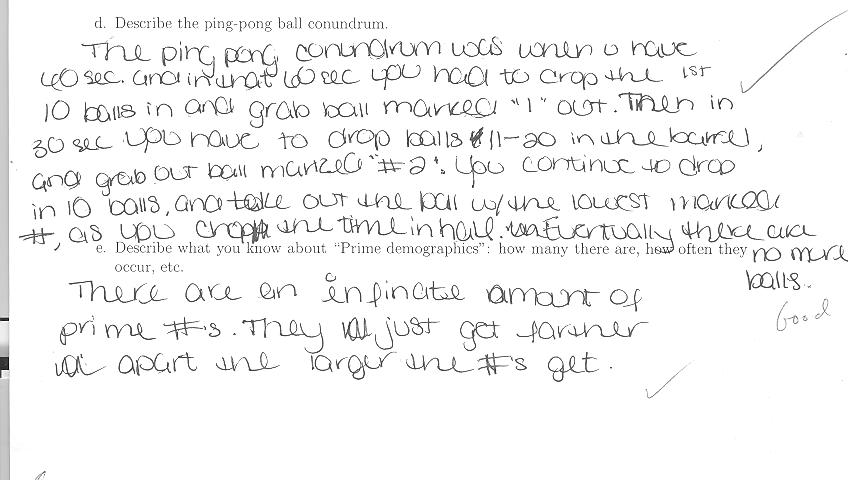 d. Describe the ping-pong ball conundrum.
The ping pong conundrum was when u have
60 sec. and in that 60 sec you had to drop the 1st
10 balls in and grab ball marked "1" out. Then in
30 sec you have to drop balls 11-20 in the barrel,
and grab out ball marked "#2". You continue to drop
in 10 balls, and take out the ball w/ the lowest marked
#, as you chop the time in half. Eventually there are
no more
balls.
Good
e. Describe what you know about "Prime demographics": how many there are, how often they
occur, etc.
There are an infinate amount of
prime #'s. They just get farther
apart the larger the #'s get.